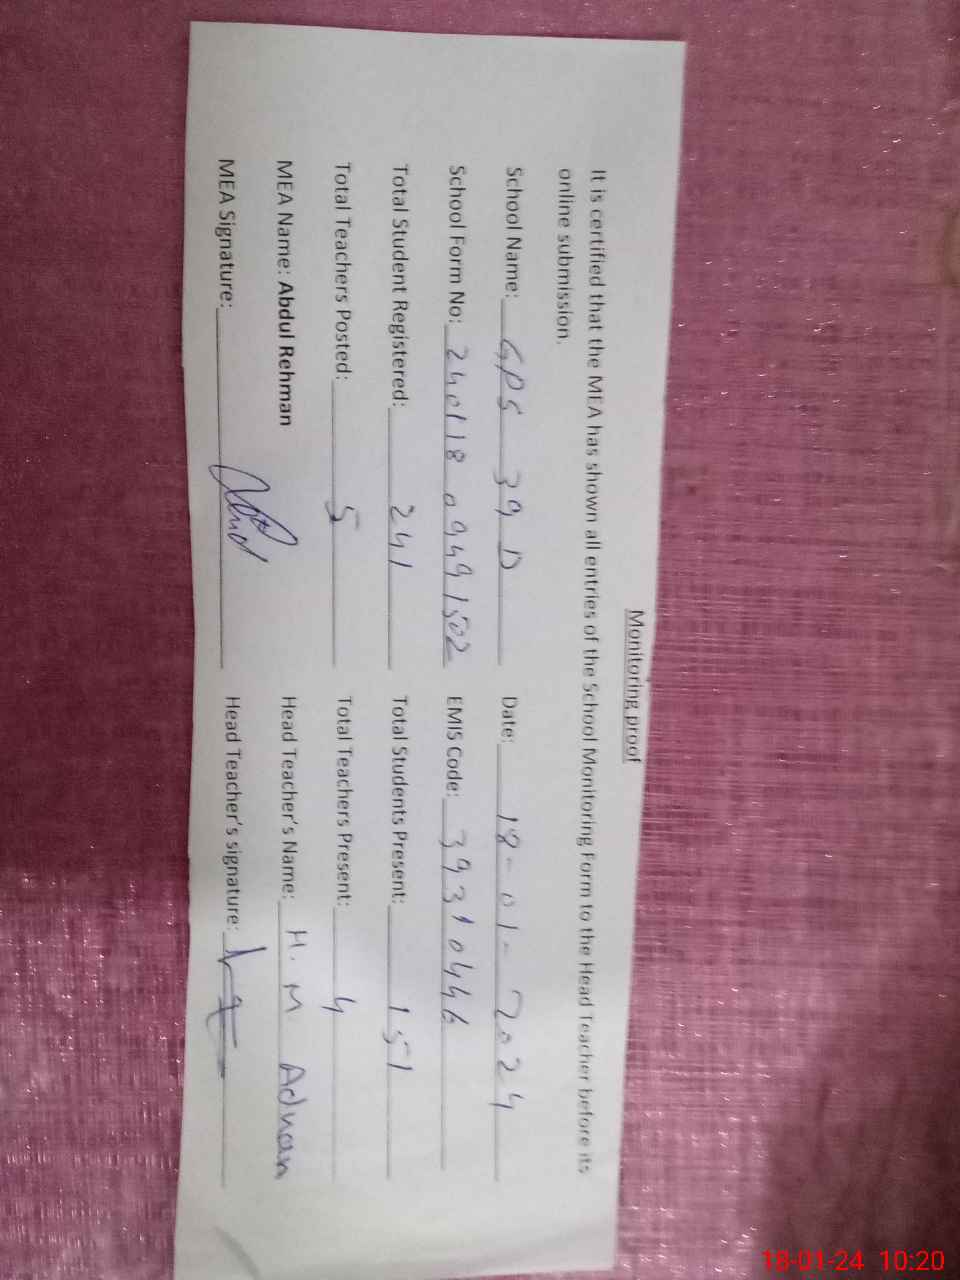 Monitoring proof
It is certified that the MEA has shown all entries of the School Monitoring Form to the Head Teacher before its
online submission.
School Name: GPS 39 D Date: 18-01-2024
School Form No: 240118 09491502 EMIS Code: 39310446
Total Student Registered: 241 Total Students Present: 151
Total Teachers Posted: 5 Total Teachers Present: 4
MEA Name: Abdul Rehman Head Teacher's Name: H. M Adnan
MEA Signature: Head Teacher's signature:
18-01-24 10:20